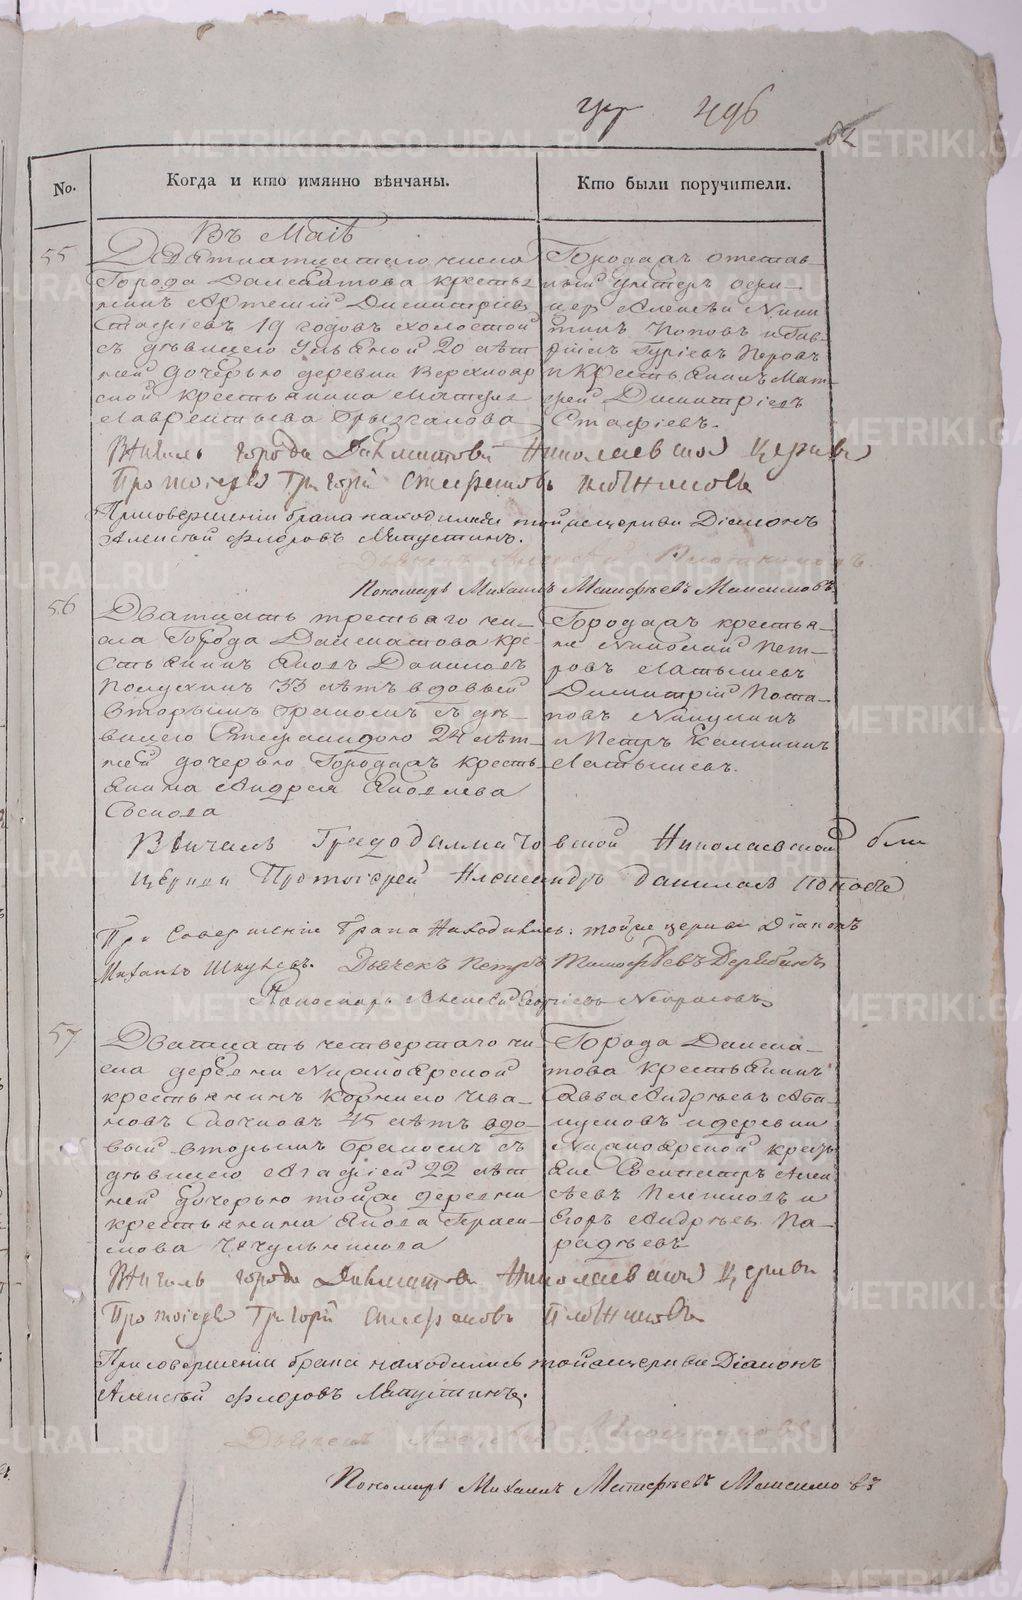 496
62
No.
Когда и кто имянно вѣнчаны.
Кто были поручители.
Въ Маiѣ
55
Девятнатцатаго числа
Города Далматова кресть
янинъ Артемiй Димитрiев
Стафiевъ 19 годовъ холостой
съ дѣвицею Ульяной 20 лѣт
ней дочерью деревни Верхнояр
ской крестьянина Матвея
Лаврентьева Брызгалова
Городахъ отстав
ный унтеръ офи-
цер Алексѣй Ники
тинъ Поповъ и Гав
Гурiевъ Перовъ
и крестьянинъ Мат
вей Димитрiевъ
Стафiевъ.
Вѣнчалъ города Далматова Николаевской церкви
Протоiерей Григорiй Стефановъ Плотниковъ
При совершенiи брака находились тойже церкви Дiаконъ
Алексѣй Флоровъ Мапустинъ.
Дьячекъ Алексѣй
Пономарь Михаилъ Матфѣевъ Максимовъ
56
Дватцать третьяго чи-
сла Города Далматова кре
стьянинъ Яковъ Данилов
Полухинъ 33 лѣтъ вдовый
вторымъ бракомъ съ дѣ-
вицею 24 лѣт
ней дочерью Городахъ кресть
янина Андрея Яковлева
Соснова
Городахъ крестья-
не Николай Пет-
ровъ Латышевъ
Димитрiй Пота-
повъ
и Петръ
Латышевъ.
Вѣнчалъ Градодалматовской Николаевской
церкви Протоiерей Александръ Даниловъ Поповъ
При совершенiи брака находились: тойже церкви Дiаконъ
Михаилъ Дьячекъ Петръ Тимофѣевъ Дерябинъ
Пономарь Алексѣй Георгiевъ Некрасовъ
57
Дватцать четвертаго чи
сла деревни Нижнеярской
крестьянинъ Корнило Ива
новъ 45 лѣтъ вдо-
вый вторымъ бракомъ съ
дѣвицею Агафiей 22 лѣт
ней дочерью тойже деревни
крестьянина Якова Гераси-
мова
Города Далма-
това крестьянинъ
Савва Андрѣевъ Аба
шуковъ и деревни
Нижнеярской кресть
яне Алек
сѣевъ и
Егоръ Андрѣевъ Па-
радѣевъ
Вѣнчалъ города Далматова Николаевской церкви
Протоiерей Григорiй Стефановъ Плотниковъ
При совершенiи брака находились тойже церкви Дiаконъ
Алексѣй Флоровъ Мапустинъ.
Дьячекъ Алексѣй
Пономарь Михаилъ Матфѣевъ Максимовъ
METRIKI.GASO-URAL.RU